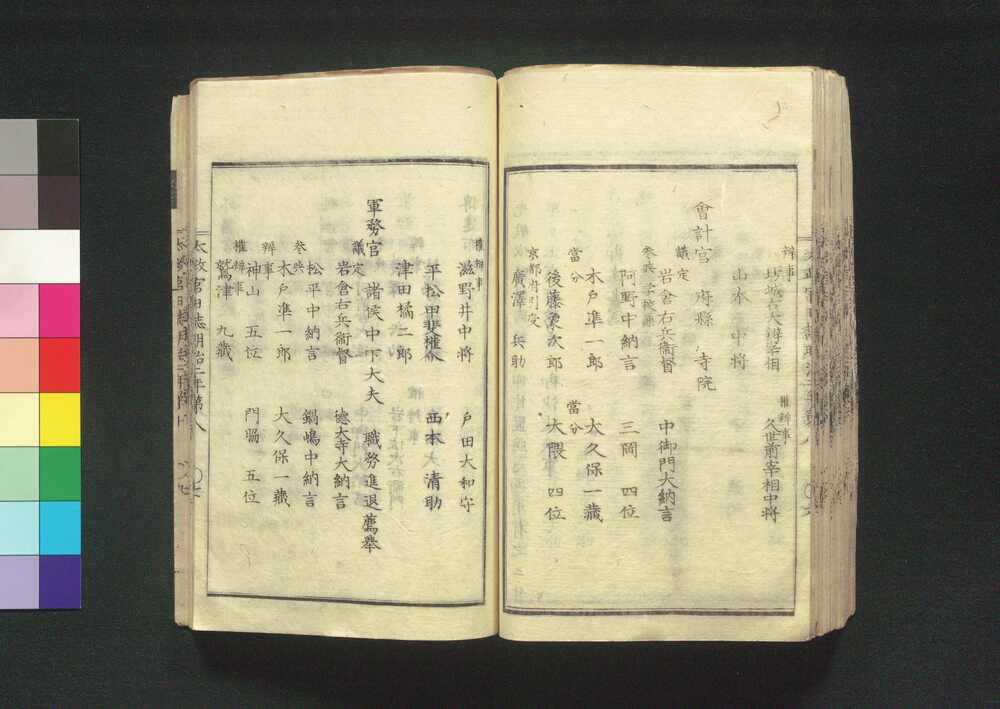 辨事
坊城左大辨宰相
權辨事
久世前宰相中將
山本中將
會計官 府縣 寺院
議定
岩倉右兵衞督 中御門大納言
參與 學校兼
阿野中納言 三岡四位
木戸準一郎 大久保一藏
當分
後藤象次郎
當分
大隈四位
京都府判事
廣澤兵助
權辨事
滋野井中將 戸田大和守
平松甲斐權介 西本清助
津田橘二郎
軍務官 諸侯中下大夫 職務進退薦舉
議定
岩倉右兵衞督 德大寺大納言
松平中納言 鍋嶋中納言
參與
木戸準一郎 大久保一藏
辨事
神山五位 門脇五位
權辨事
鷲津九藏
太政官日誌明治二年第八 〇七